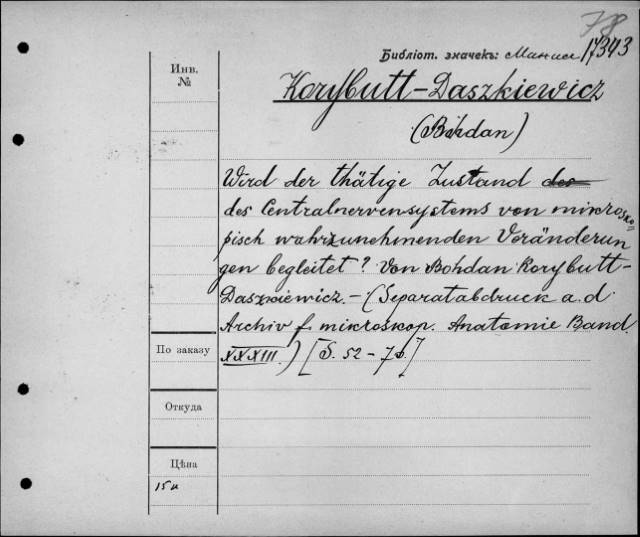 78
Библіот. значекъ: Маниси 17343
Инв. №
Korybutt-Daszkiewicz
(Bohdan)
Wird der thätige Zustand des
des Centralnervensystems von mikrosko-
pisch wahrzunehmenden Veränderun
gen begleitet? Von Bohdan Korybutt-
Daszkiewicz. - (Separatabdruck a. d.
Archiv f. mikroskop. Anatomie Band.
По заказу
XXXIII.) [S. 52 - 76.]
Откуда
Цѣна
15 и